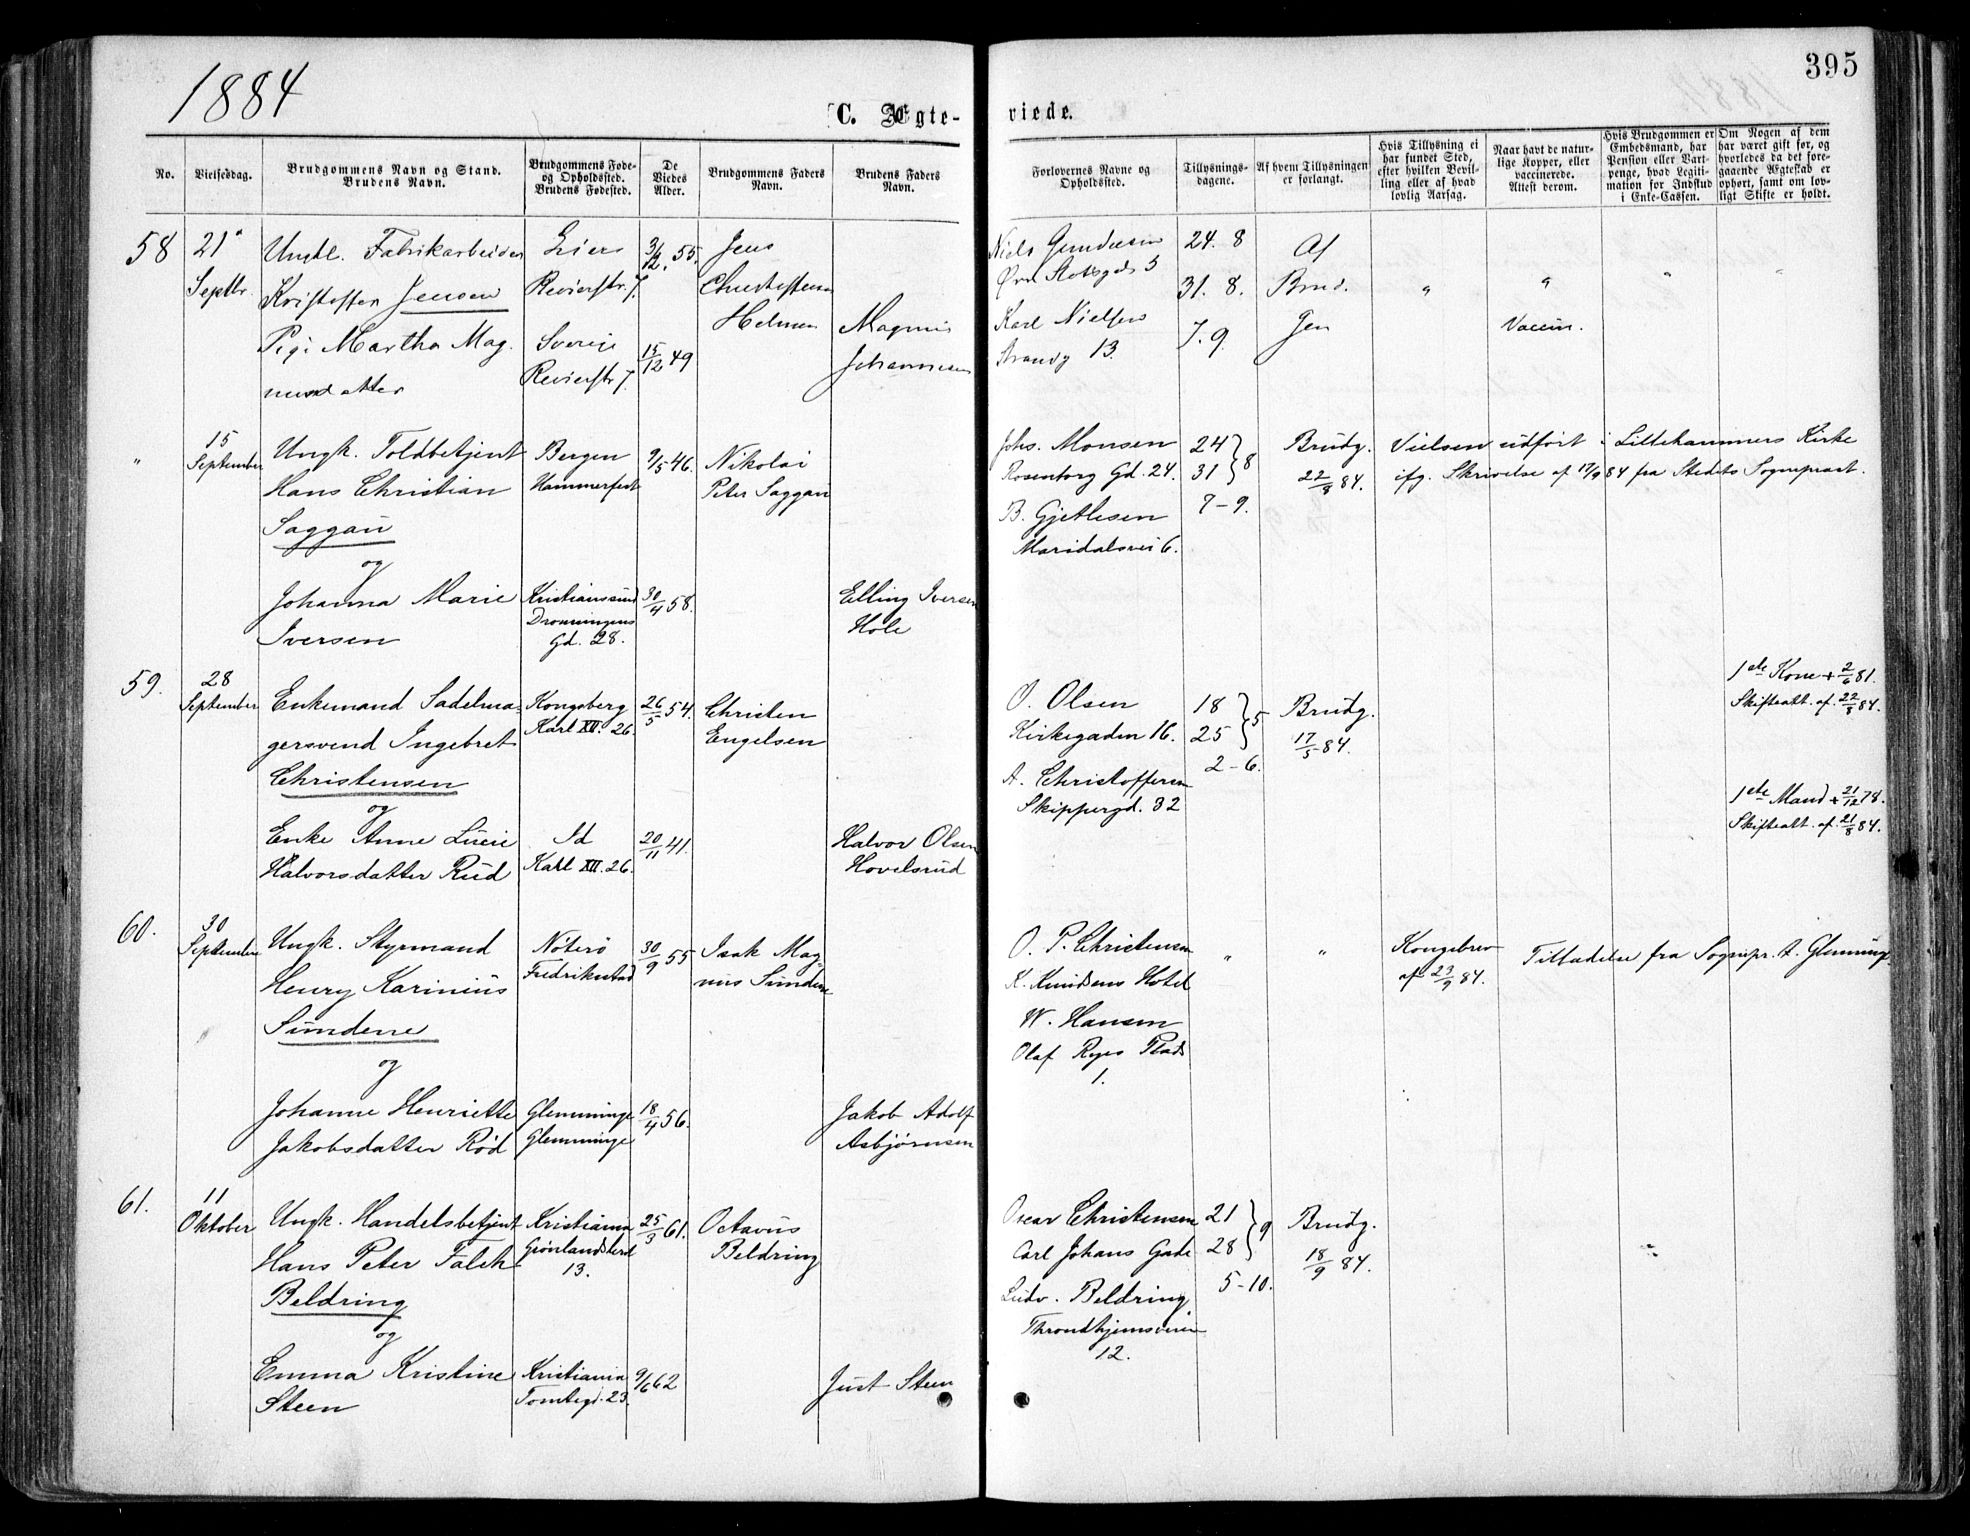 1884
395
C. Ægte-
viede.
No.
Vielsesdag.
Brudgommens Navn og Stand.
Brudens Navn.
Brudgommens Føde-
og Opholdssted.
Brudens Fødested.
De
Viedes
Alder.
Brudgommens Faders
Navn.
Brudens Faders
Navn.
Forlovernes Navne og
Opholdssted.
Tillysnings-
dagene.
Af hvem Tillysningen
er forlangt.
Hvis Tillysning ei
har fundet Sted,
efter hvilken Bevil-
ling eller af hvad
lovlig Aarsag.
Naar havt de natur-
lige Kopper, eller
vaccinerede.
Attest derom.
Hvis Brudgommen er
Embedsmand, har
Pension eller Vart-
penge, hvad Legiti-
mation for Indskud
i Enke-Cassen.
Om Nogen af dem
har været gift før, og
hvorledes da det fore-
gaaende Ægteskab er
ophørt, samt om lov-
ligt Skifte er holdt.
58
21
Septbr.
Ungkl. Fabrikarbeider
Kristoffer Jensen
Pige Martha Mag-
nusdatter
Liers
Revierstr 7.
Sverige
Revierstr 7.
3/12 55.
15/12 49
Jens
Christoffersen
Helmen
Magnus
Johannesen
Niels Gundersen
Øvre Slotsgd 5
Karl Nielsen
Strandg 13.
24. 8
31. 8.
7. 9
Af
Brud.
Gen
"
"
Vaccin.
"
"
"
15
September
Ungk. Toldbetjent
Hans Christian
Saggau
og
Johanna Marie
Iversen
Bergen
Hammerfest
Kristianssund
Dronningens
Gd. 28.
9/5 46.
30/4 58.
Nikolai
Peter Saggau
Elling Iversen
Hole
Johs. Monsen
Rosenborg Gd. 24.
B. Gjetlesen
Maridalsvei 6.
24
31 } 8
7 – 9.
Brudg.
22/8 84.
Vielsen udført i Lillehammers Kirke
ifg. Skrivelse af 17/9 84 fra Stedets Sogneprest.
59.
28
September
Enkemand Sadelma-
gersvend Ingebret
Christensen
og
Enke Anne Lucie
Halvorsdatter Rud
Kongsberg
Karl XII. 26.
Id
Karl XII. 26.
26/5 54.
20/11 41.
Christen
Engelsen
Halvor Olsen
Hovelsrud
O. Olsen
Kirkegaden 16.
A. Christoffersen
Skippergd. 32
18
25 } 5
2 – 6.
Brudg.
17/5 84.
1ste Kone + 2/6 81.
Skifteatt. af. 22/8 84.
1ste Mand + 21/12 78.
Skifteatt. af. 21/8 84.
60.
30
September
Ungk. Styrmand
Henry Karinius
Sundene
og
Johanne Henriette
Jakobsdatter Rød
Nøterø
Fredrikstad
Glemminge
Glemminge
30/9 55
18/4 56.
Isak Mag-
nus Sundene
Jakob Adolf
Asbjørnsen
O. P. Christensen
K. Knudsens Hotel
W. Hansen
Olaf Ryes Plads
1.
"
"
Kongebrev
af 23/9 84.
Tilladelse fra Sognepr. t. Glemminge
61.
11
Oktober
Ungk. Handelsbetjent
Hans Peter Falck
Beldring
og
Emma Kristine
Steen
Kristiania
Grønlandsleret
13.
Kristiania
Tomtegd. 23.
25/3 61.
9/6 62
Octavus
Beldring
Just Steen
Oscar Christensen
Carl Johans Gade
Ludv. Beldring
Throndhjemsveien
12.
21
28 } 9
5 – 10.
Brudg.
18/9 84.